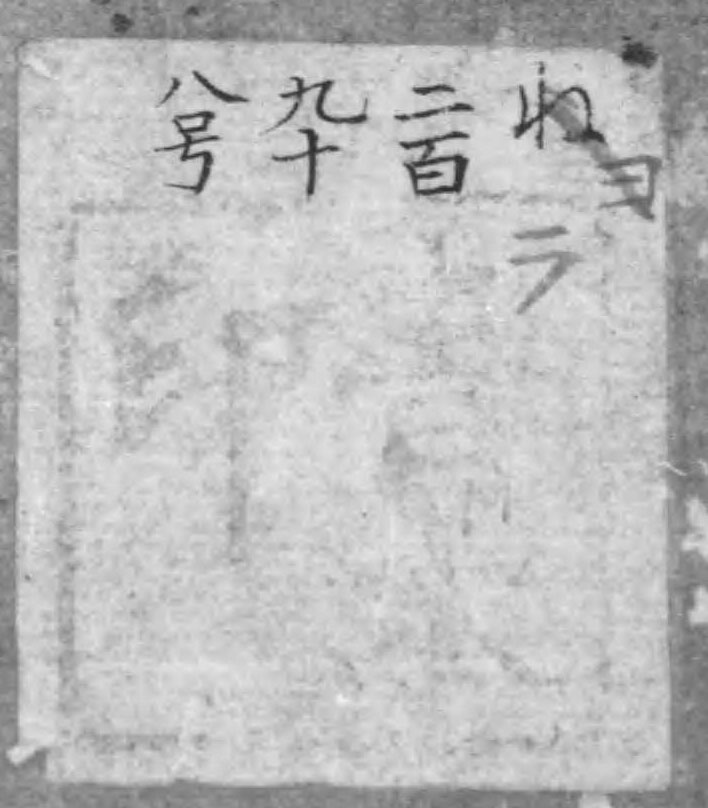 ね
二百
九十
八号
ヨ
ラ